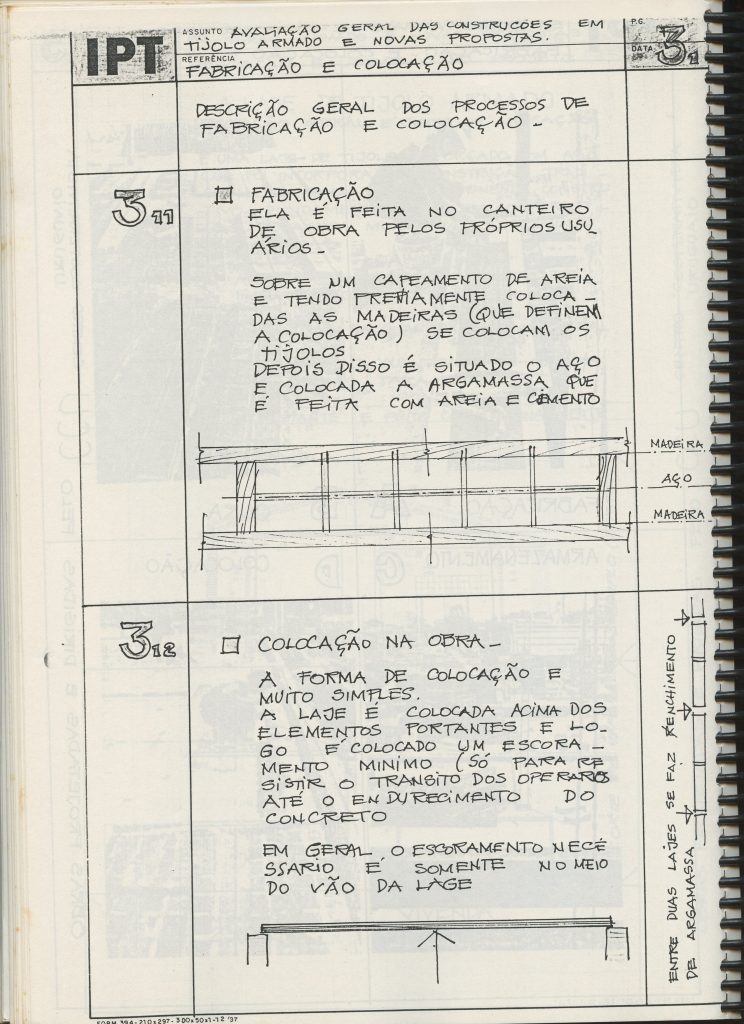 IPT
ASSUNTO AVALIAÇÃO GERAL DAS CONSTRUCÕES EM
TIJOLO ARMADO E NOVAS PROPOSTAS.
REFERÊNCIA
FABRICAÇÃO E COLOCAÇÃO
PG.
DATA
31
DESCRIÇÃO GERAL DOS PROCESSOS DE
FABRICAÇÃO E COLOCAÇÃO -
3 11
FABRICAÇÃO
ELA É FEITA NO CANTEIRO
DE OBRA PELOS PRÓPRIOS USU
ÁRIOS -
SOBRE UM CAPEAMENTO DE AREIA
E TENDO PREVIAMENTE COLOCA -
DAS AS MADEIRAS (QUE DEFINEM
A COLOCAÇÃO) SE COLOCAM OS
TIJOLOS
DEPOIS DISSO É SITUADO O AÇO
E COLOCADA A ARGAMASSA QUE
É FEITA COM AREIA E CEMENTO
MADEIRA
AÇO
MADEIRA
3 12
COLOCAÇÃO NA OBRA -
A FORMA DE COLOCAÇÃO E
MUITO SIMPLES.
A LAJE É COLOCADA ACIMA DOS
ELEMENTOS PORTANTES E LO-
GO É COLOCADO UM ESCORA -
MENTO MINIMO (SÓ PARA RE
SISTIR O TRANSITO DOS OPERARIOS
ATÉ O ENDURECIMENTO DO
CONCRETO
EM GERAL O ESCORAMENTO NECÉ
SSARIO É SOMENTE NO MEIO
DO VÃO DA LAGE
ENTRE DUAS LAJES SE FAZ RENCHIMENTO
DE ARGAMASSA
FORM 394 - 210x297 - 300x50x1-12 '37